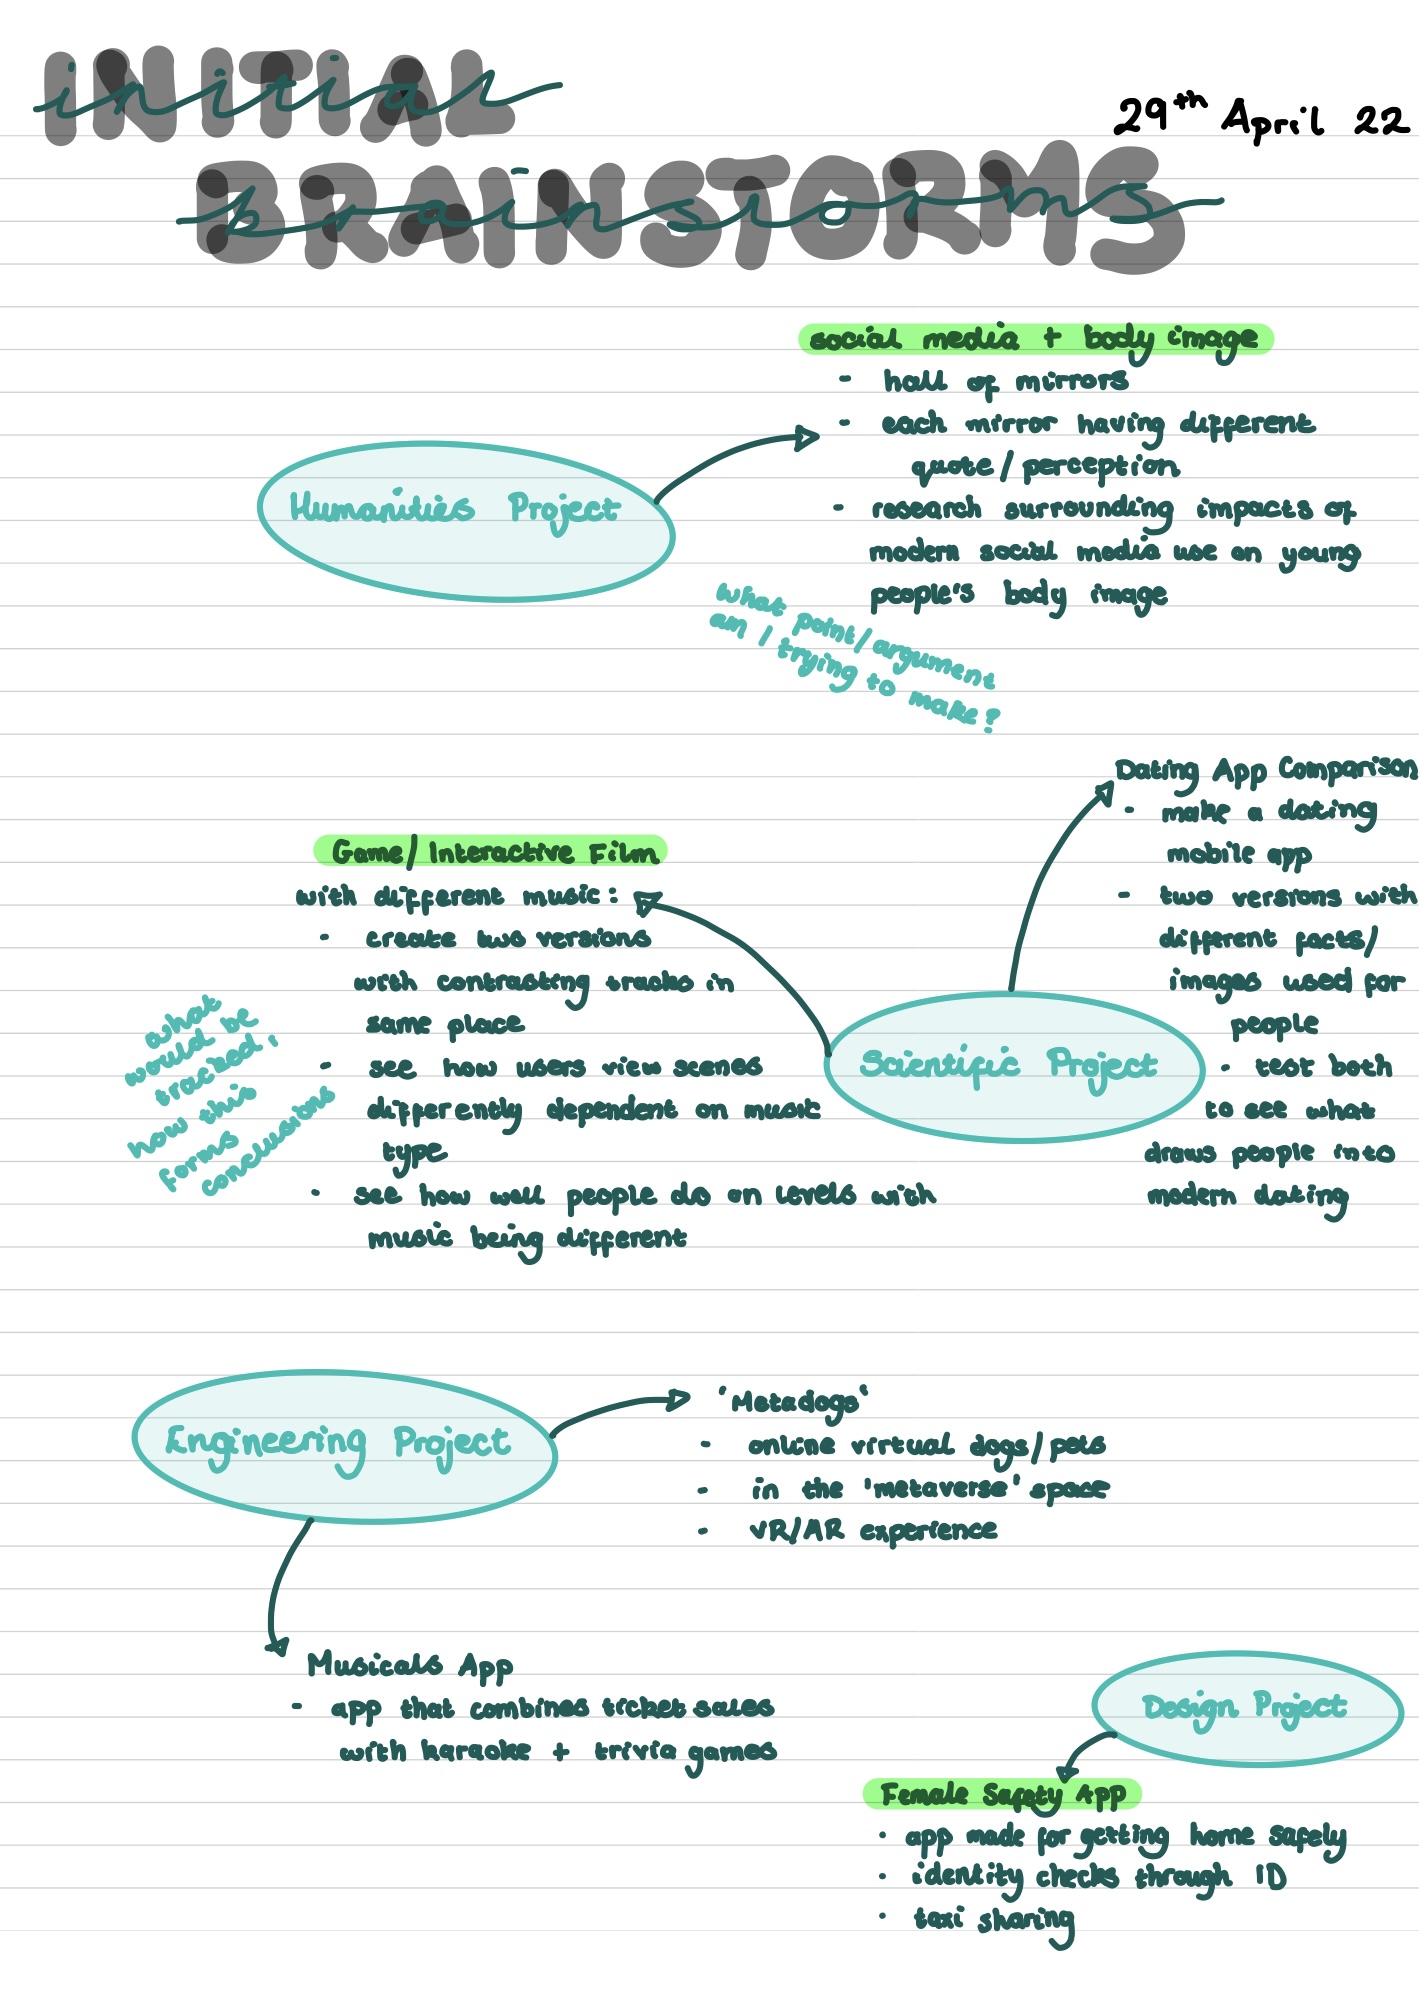 INITIAL
initial
29th April 22
BRAINSTORMS
brainstorms
Humanities Project
social media + body image
- hall of mirrors
- each mirror having different
quote / perception
- research surrounding impacts of
modern social media use on young
people's body image
what point/argument
am I trying to make?
Scientific Project
Dating App Comparison
- make a dating
mobile app
- two versions with
different facts/
images used for
people
- test both
to see what
draws people into
modern dating
Game/Interactive Film
with different music:
- create two versions
with contrasting tracks in
same place
- see how users view scenes
differently dependent on music
type
- see how well people do on levels with
music being different
what
would be
tracked;
how this
forms
conclusions
Engineering Project
'Metadogs'
- online virtual dogs/pets
- in the 'metaverse' space
- VR/AR experience
Musicals App
- app that combines ticket sales
with karaoke + trivia games
Design Project
Female Safety App
· app made for getting home safely
· identity checks through ID
· taxi sharing